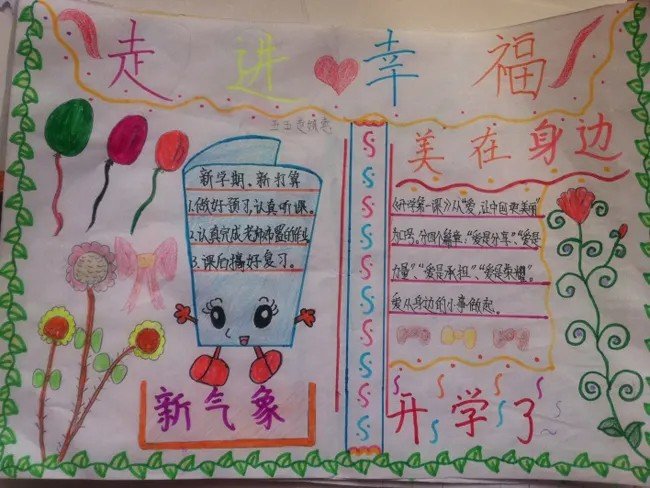 走进幸福
五五
新学期、新打算
1.做好预习,认真听课。
2.认真完成老师布置的作业
3.课后搞好复习。
新气象
美在身边
《开学第一课》从“爱,让中国更美丽”
为口号。分四个篇章:“爱是分享”、“爱是
力量”、“爱是承担”、“爱是荣耀”。
爱从身边的小事做起。
开学了